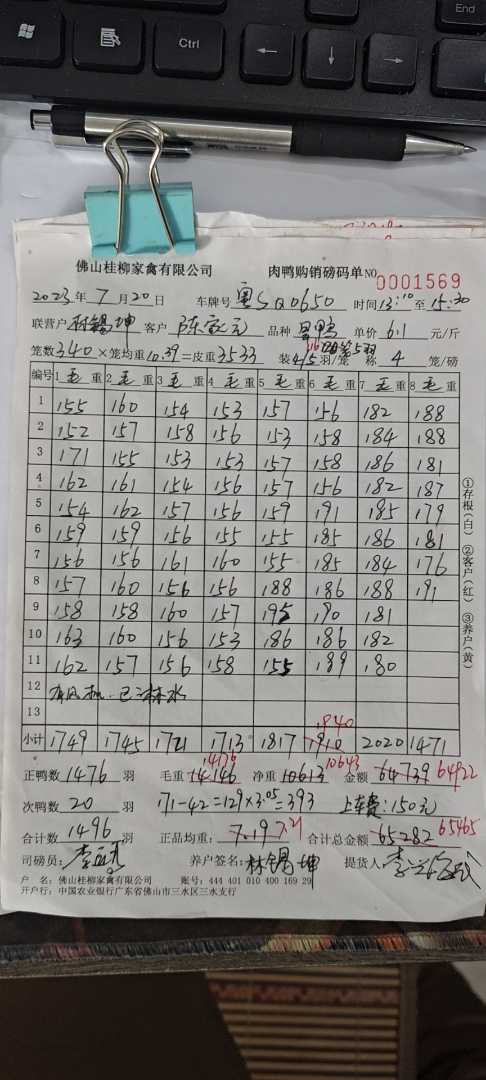 End
Ctrl
佛山桂柳家禽有限公司 肉鸭购销磅码单 NO 0001569
2023年7月20日 车牌号 粤SQ0650 时间13:10至15:30
联营户 林锡坤 客户 陈家元 品种 单价 6.1 元/斤
笼数340×笼均重10.39=皮重3533 装4/5羽/笼 称 4 笼/磅
编号 1毛重 2毛重 3毛重 4毛重 5毛重 6毛重 7毛重 8毛重
1 155 160 154 153 157 156 182 188
2 152 157 158 156 153 158 184 188
3 171 155 153 153 157 158 186 181
4 162 161 154 156 157 156 182 187
5 154 162 157 156 159 191 185 179
6 159 159 156 155 155 185 186 181
7 156 156 161 160 155 185 184 176
8 157 160 156 156 188 186 188 191
9 158 158 160 157 195 190 181
10 163 160 156 153 186 186 182
11 162 157 156 158 155 189 180
12 有风机.已淋水
13
1940
小计 1749 1745 1721 1713 1817 1910 2020 1471
14176 10643
正鸭数 1476 羽 毛重 14146 净重 10613 金额 64739 64922
次鸭数 20 羽 171-42=129×3.05=393 上车费:150元
合计数 1496 羽 正品均重: 7.19 7.21 合计总金额 65282 65465
司磅员: 养户签名: 林锡坤 提货人
户 名: 佛山桂柳家禽有限公司 账号: 444 401 010 400 169 29
开户行: 中国农业银行广东省佛山市三水区三水支行
①存根(白) ②客户(红) ③养户(黄)